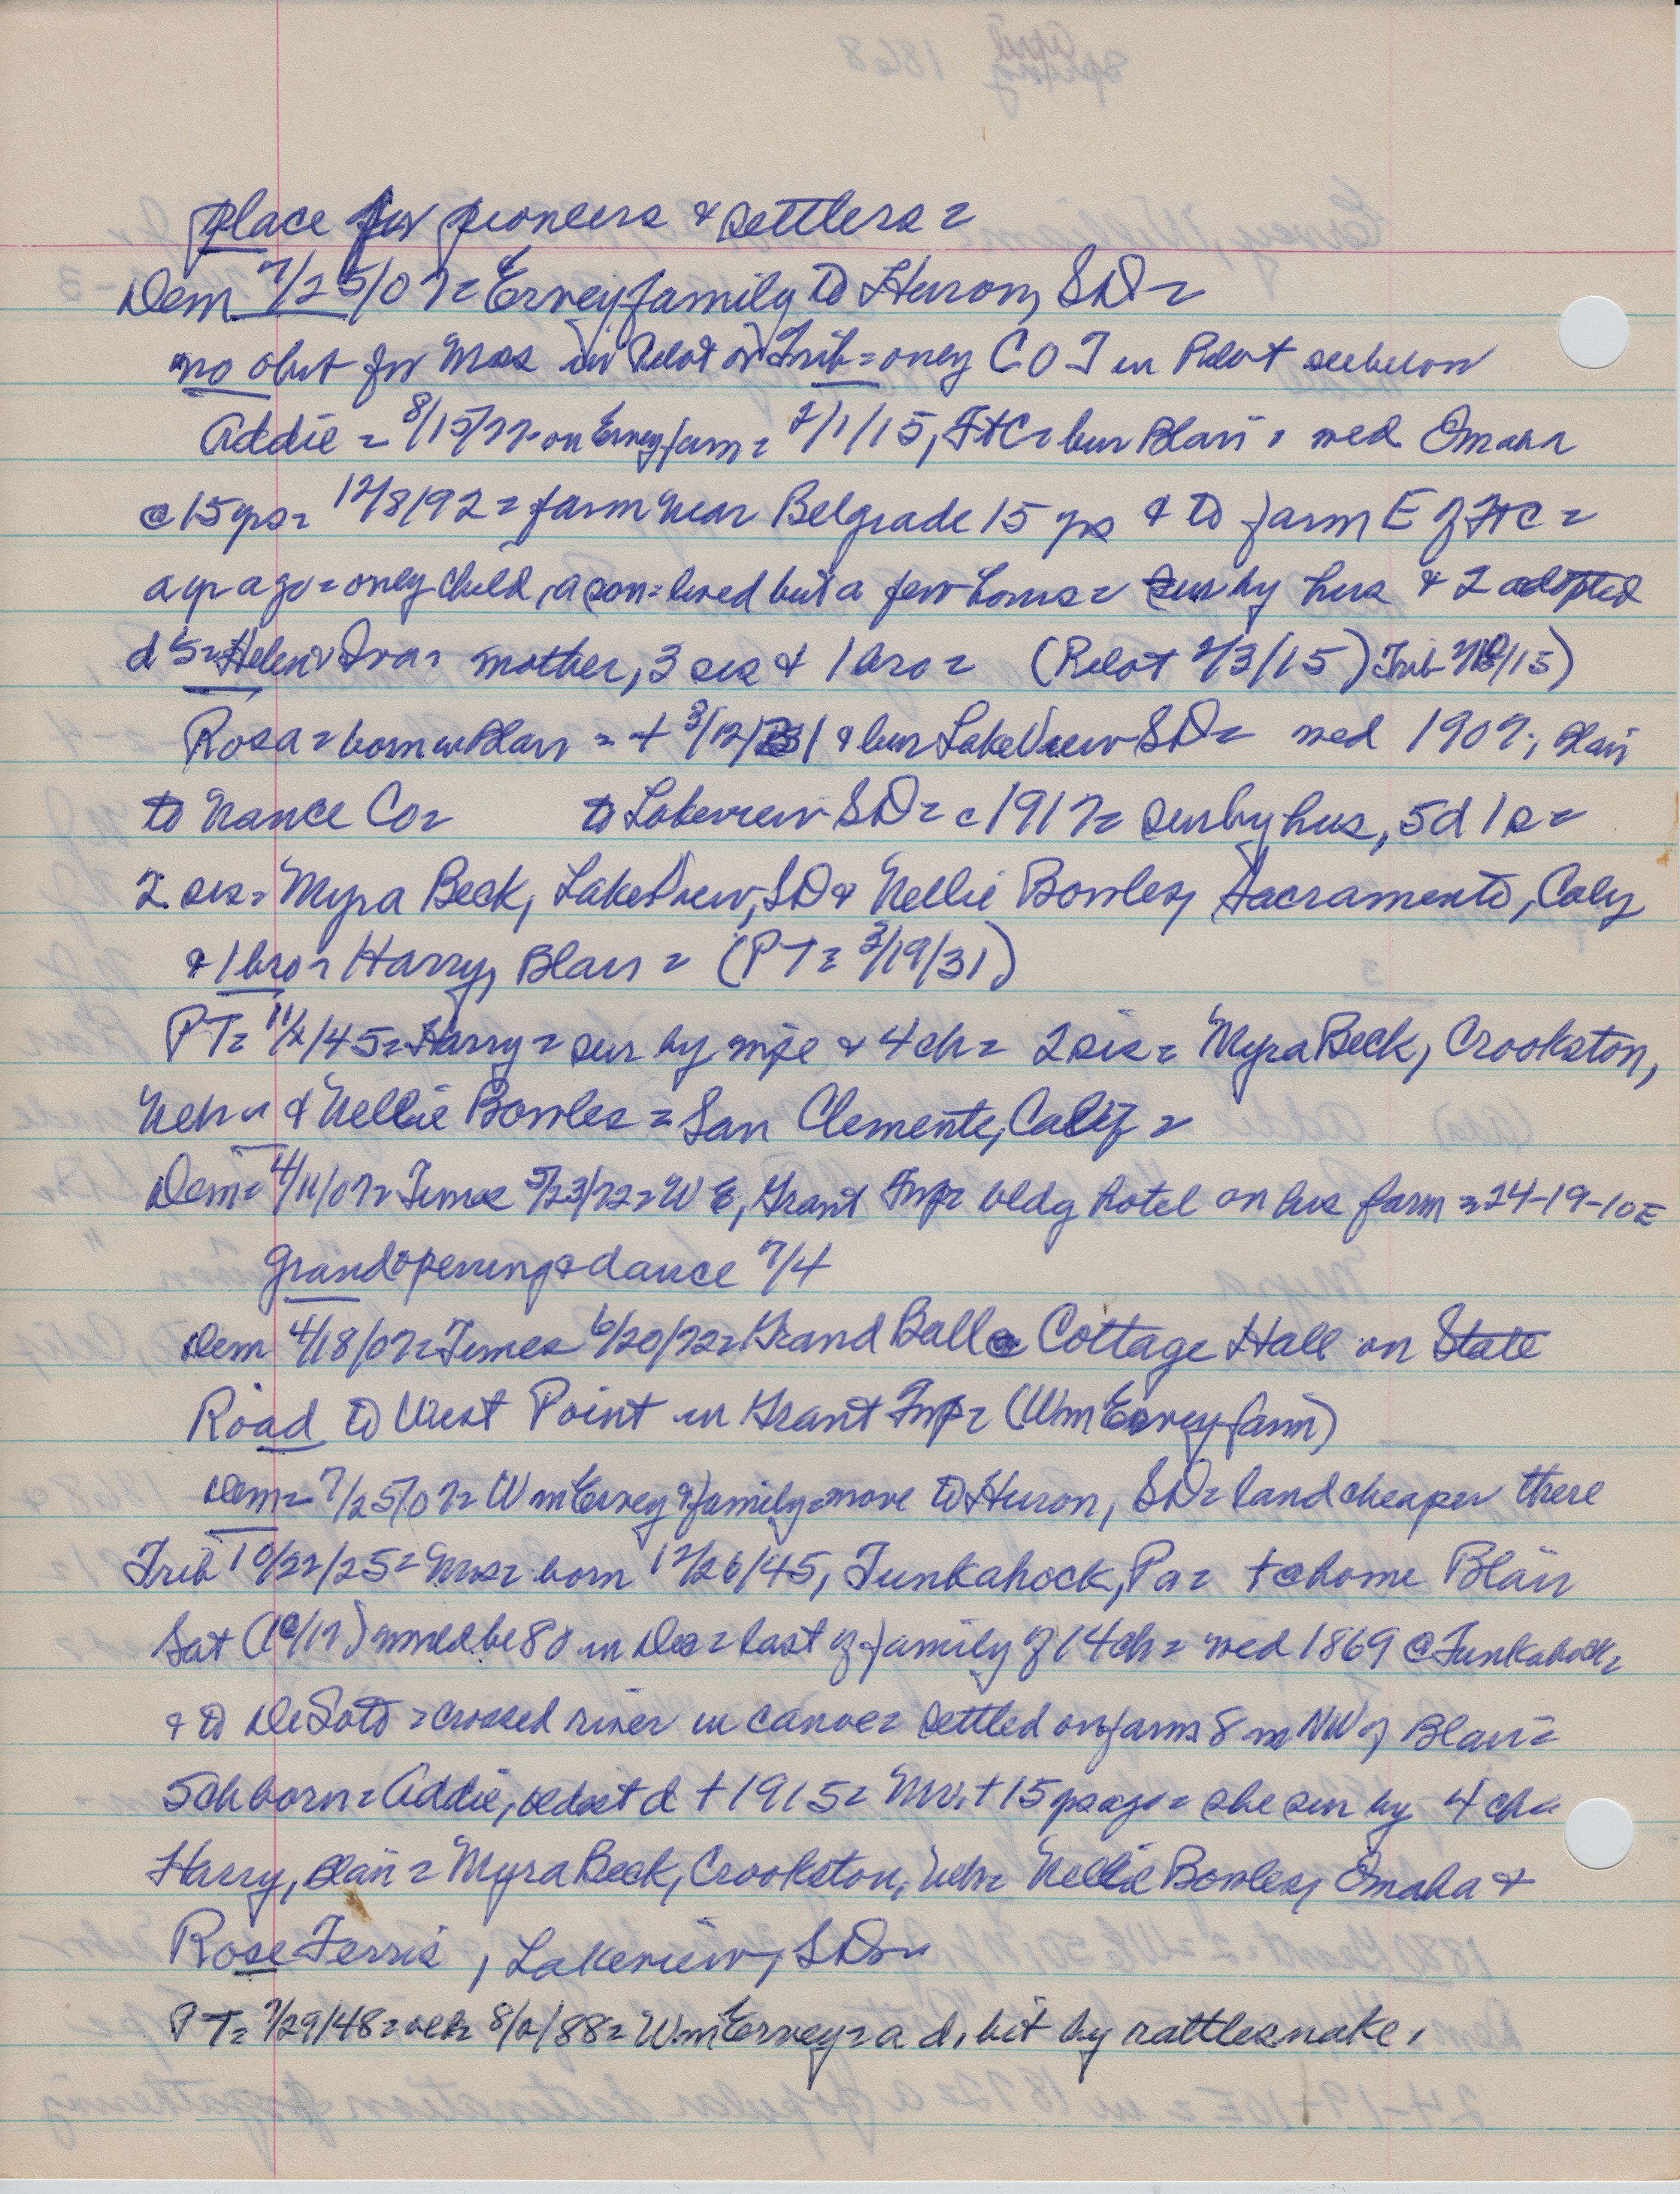 place for pioneers & settlers =
Dem 7/25/07 = Ervey family to Huron, SD =
no obit for Mrs in Pilot or Trib = only COT in Pilot see below
Addie = 8/15/77 on Ervey farm = 2/1/15, FtC = bur Blair = wed Omaha
@ 15 yrs = 12/8/92 = farm near Belgrade 15 yrs & to farm E of FtC =
a yr ago = only child, a son = lived but a few hours = sur by hus & 2 adopted
d's = Helen & Iva = mother, 3 sis & 1 bro = (Pilot 2/3/15) Trib /15)
Rosa = born in Blair = + 3/12/31 & bur Lakeview SD = wed 1907, Blair
to Nance Co = to Lakeview SD = c 1917 = sur by hus, 5d 1s =
2 sis = Myra Beck, Lakeview, SD & Nellie Bowles, Sacramento, Calif
& 1 bro = Harry, Blair = (PT = 3/19/31)
PT = 11/1/45 = Harry = sur by wife & 4 ch = 2 sis = Myra Beck, Crookston,
Nebr & Nellie Bowles = San Clemente, Calif =
Dem = 4/11/07 = Times 5/23/72 = W E, Grant Twp = bldg hotel on his farm = 24-19-10E
grand opening & dance 7/4
Dem 4/18/07 = Times 6/20/72 = Grand Ball @ Cottage Hall on State
Road to West Point in Grant Twp = (Wm Ervey farm)
Dem = 7/25/07 = Wm Ervey & family = move to Huron, SD = land cheaper there
Trib 10/22/25 = Mrs = born 12/26/45, Tunkahock, Pa = + @ home Blair
Sat (10/17) would be 80 in Dec = last of family of 14 ch = wed 1869 @ Tunkahock =
& to DeSoto = crossed river in canoe = settled on farm 8 m NW of Blair =
5 ch born = Addie, oldest d + 1915 = Mr. + 15 yrs ago = she sur by 4 ch =
Harry, Blair = Myra Beck, Crookston, Nebr = Nellie Bowles, Omaha &
Rose Ferris, Lakeview, SD =
PT = 7/29/48 = 8/2/88 = Wm Ervey = a d. bit by rattlesnake.